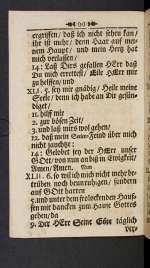 ❧ 90 ❧
ergriffen/ daß ich nicht sehen kan/
ihr ist mehr/ denn Haar auf mei-
nem Haupt/ und mein Hertz hat
mich verlassen/
14: Laß Dirs gefallen HErr daß
Du mich errettest/ Eile HErr mir
zu helffen/ und
XLI. 5. sey mir gnädig/ Heile meine
Seele/ denn ich habe an Dir gesün-
diget/
11. hilff mir
2. zur bösen Zeit/
3. und laß mirs wol gehen/
12. daß mein Feind über mich
nicht jauchze:
14: Gelobet sey der HErr unser
GOtt/ von nun an biß in Ewigkeit/
Amen/ Amen.
XLII. 6. so wil ich mich nicht mehr be-
trüben noch beunruhigen/ sondern
auf GOtt harren
5. und unter dem frolockenden Hauf-
fen mit dancken zum Hause Gottes
gehen/ da
9. Der HErr Seine Güte täglich